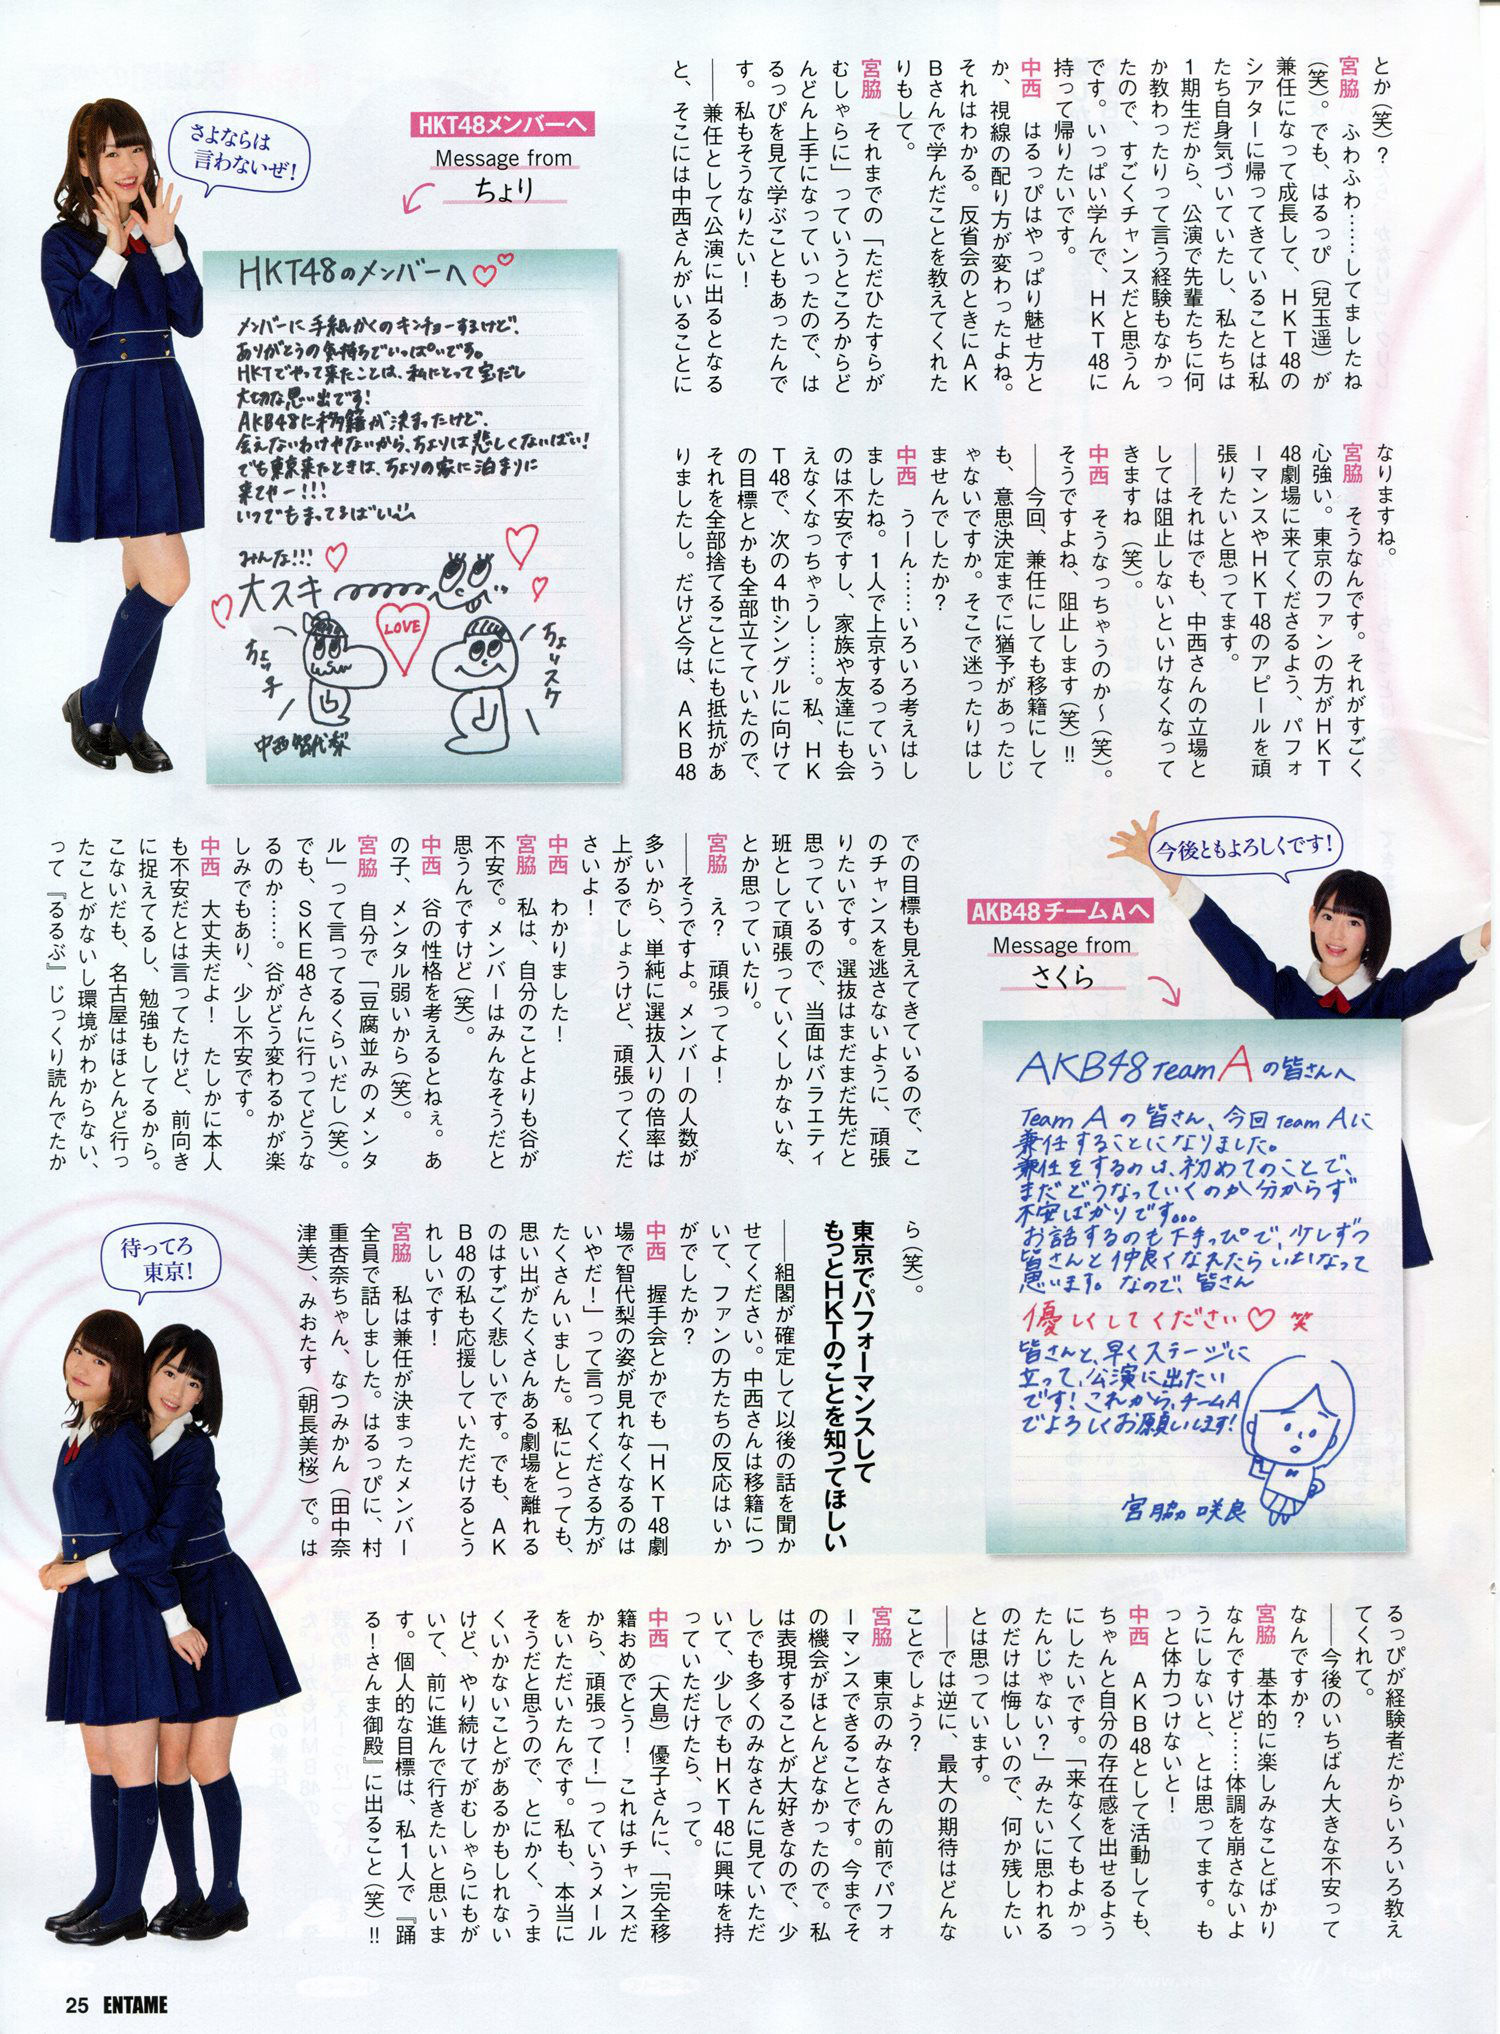 とか（笑）？
宮脇　ふわふわ……してましたね
（笑）。でも、はるっぴ（兒玉遥）が
兼任になって成長して、ＨＫＴ48の
シアターに帰ってきていることは私
たち自身気づいていたし、私たちは
１期生だから、公演で先輩たちに何
か教わったりって言う経験もなかっ
たので、すごくチャンスだと思うん
です。いっぱい学んで、ＨＫＴ48に
持って帰りたいです。
中西　はるっぴはやっぱり魅せ方と
か、視線の配り方が変わったよね。
それはわかる。反省会のときにＡＫ
Ｂさんで学んだことを教えてくれた
りもして。
宮脇　それまでの「ただひたすらが
むしゃらに」っていうところからど
んどん上手になっていったので、は
るっぴを見て学ぶこともあったんで
す。私もそうなりたい！
――兼任として公演に出るとなる
と、そこには中西さんがいることに
なりますね。
宮脇　そうなんです。それがすごく
心強い。東京のファンの方がＨＫＴ
48劇場に来てくださるよう、パフォ
ーマンスやＨＫＴ48のアピールを頑
張りたいと思ってます。
――それはでも、中西さんの立場と
しては阻止しないといけなくなって
きますね（笑）。
中西　そうなっちゃうのか〜（笑）。
そうですよね、阻止します（笑）!!
――今回、兼任にしても移籍にして
も、意思決定までに猶予があったじ
ゃないですか。そこで迷ったりはし
ませんでしたか？
中西　うーん……いろいろ考えはし
ましたね。１人で上京するっていう
のは不安ですし、家族や友達にも会
えなくなっちゃうし……。私、ＨＫ
Ｔ48で、次の４thシングルに向けて
の目標とかも全部立てていたので、
それを全部捨てることにも抵抗があ
りましたし。だけど今は、ＡＫＢ48
での目標も見えてきているので、こ
のチャンスを逃さないように、頑張
りたいです。選抜はまだまだ先だと
思っているので、当面はバラエティ
班として頑張っていくしかないな、
とか思っていたり。
宮脇　え？　頑張ってよ！
――そうですよ。メンバーの人数が
多いから、単純に選抜入りの倍率は
上がるでしょうけど、頑張ってくだ
さいよ！
中西　わかりました！
宮脇　私は、自分のことよりも谷が
不安で。メンバーはみんなそうだと
思うんですけど（笑）。
中西　谷の性格を考えるとねぇ。あ
の子、メンタル弱いから（笑）。
宮脇　自分で「豆腐並みのメンタ
ル」って言ってるくらいだし（笑）。
でも、ＳＫＥ48さんに行ってどうな
るのか……。谷がどう変わるかが楽
しみでもあり、少し不安です。
中西　大丈夫だよ！　たしかに本人
も不安だとは言ってたけど、前向き
に捉えてるし、勉強もしてるから。
こないだも、名古屋はほとんど行っ
たことがないし環境がわからない、
って『るるぶ』じっくり読んでたか
ら（笑）。
東京でパフォーマンスして
もっとＨＫＴのことを知ってほしい
――組閣が確定して以後の話を聞か
せてください。中西さんは移籍につ
いて、ファンの方たちの反応はいか
がでしたか？
中西　握手会とかでも「ＨＫＴ48劇
場で智代梨の姿が見れなくなるのは
いやだ！」って言ってくださる方が
たくさんいました。私にとっても、
思い出がたくさんある劇場を離れる
のはすごく悲しいです。でも、ＡＫ
Ｂ48の私も応援していただけるとう
れしいです！
宮脇　私は兼任が決まったメンバー
全員で話しました。はるっぴに、村
重杏奈ちゃん、なつみかん（田中奈
津美）、みおたす（朝長美桜）で。は
るっぴが経験者だからいろいろ教え
てくれて。
――今後のいちばん大きな不安って
なんですか？
宮脇　基本的に楽しみなことばかり
なんですけど……体調を崩さないよ
うにしないと、とは思ってます。も
っと体力つけないと！
中西　ＡＫＢ48として活動しても、
ちゃんと自分の存在感を出せるよう
にしたいです。「来なくてもよかっ
たんじゃない？」みたいに思われる
のだけは悔しいので、何か残したい
とは思っています。
――では逆に、最大の期待はどんな
ことでしょう？
宮脇　東京のみなさんの前でパフォ
ーマンスできることです。今までそ
の機会がほとんどなかったので。私
は表現することが大好きなので、少
しでも多くのみなさんに見ていただ
いて、少しでもＨＫＴ48に興味を持
っていただけたら、って。
中西　（大島）優子さんに、「完全移
籍おめでとう！　これはチャンスだ
から、頑張って！」っていうメール
をいただいたんです。私も、本当に
そうだと思うので、とにかく、うま
くいかないことがあるかもしれない
けど、やり続けてがむしゃらにもが
いて、前に進んで行きたいと思いま
す。個人的な目標は、私１人で『踊
る！さんま御殿』に出ること（笑）!!
さよならは
言わないぜ！
HKT48メンバーへ
Message from
ちょり
HKT48のメンバーへ♡♡
メンバーに手紙かくのキンチョーするけど、
ありがとうの気持ちでいっぱいです。
HKTでやって来たことは、私にとって宝だし
大切な思い出です！
AKB48に移籍が決まったけど、
会えないわけやないから、ちょりは悲しくないばい！
でも東京来たときは、ちょりの家に泊まりに
来てやー！！！
いつでもまってるばい
みんな!!!
大スキ
LOVE
ちょっ子
ちょりスケ
中西智代梨
今後ともよろしくです！
AKB48チームAへ
Message from
さくら
AKB48 Team Aの皆さんへ
Team Aの皆さん、今回Team Aに
兼任することになりました。
兼任をするのは、初めてのことで、
まだどうなっていくのか分からず
不安ばかりです。。。
お話するのも下手っぴで、少しずつ
皆さんと仲良くなれたらいいなって
思います。なので、皆さん
優しくしてください♡笑
皆さんと、早くステージに
立って、公演に出たい
です！これから、チームA
でよろしくお願いします！
宮脇咲良
待ってろ
東京！
25 ENTAME